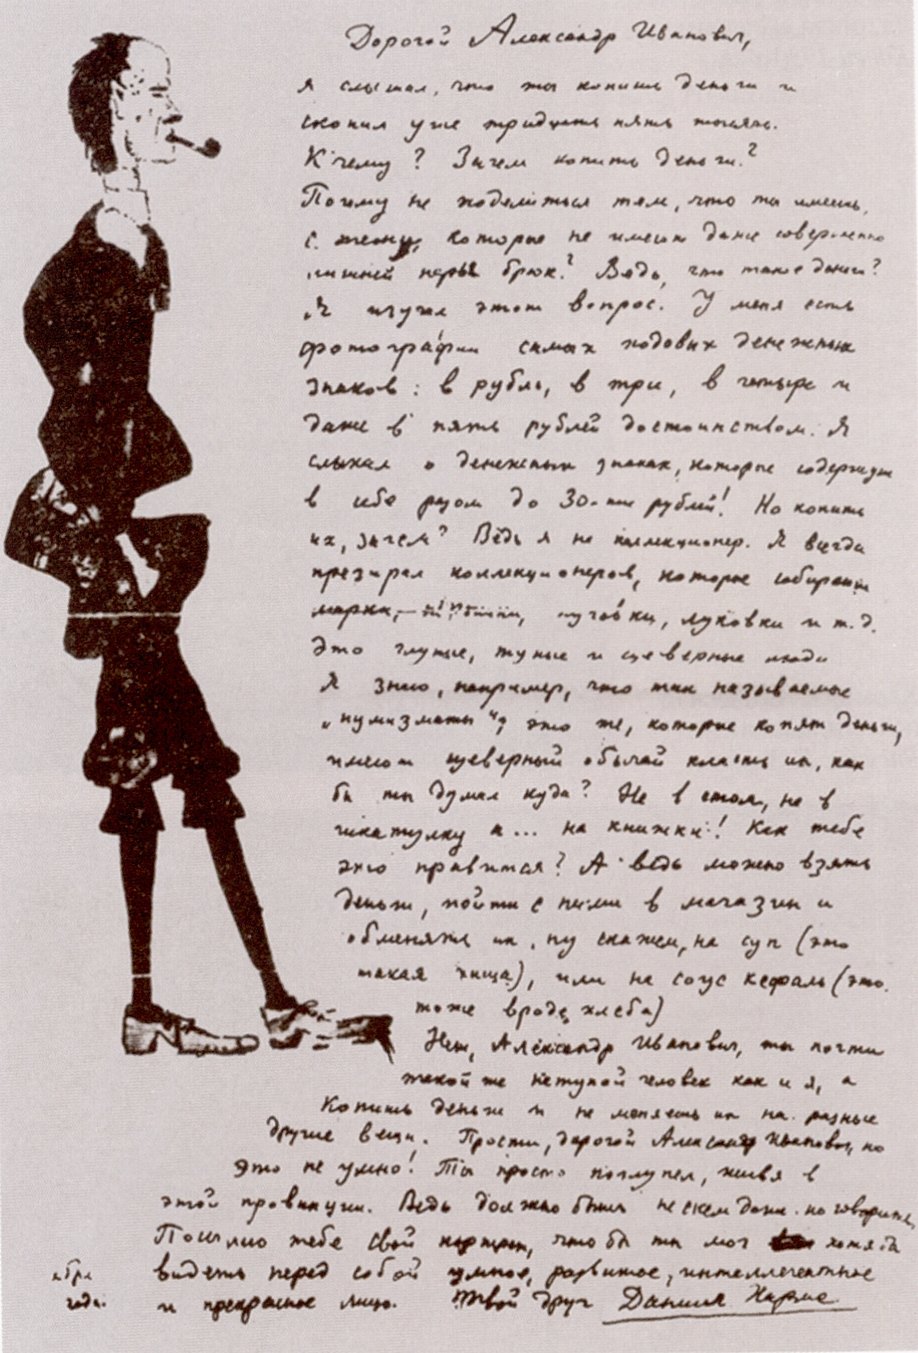 Дорогой Александр Иванович,
я слышал, что ты копишь деньги и
скопил уже тридцать пять тысяч.
К чему? Зачем копить деньги?
Почему не поделиться тем, что ты имеешь,
с теми, которые не имеют даже совершенно
лишней пары брюк? Ведь, что такое деньги?
Я изучил этот вопрос. У меня есть
фотографии самых ходовых денежных
знаков: в рубль, в три, в четыре и
даже в пять рублей достоинством. Я
слыхал о денежных знаках, которые содержат
в себе разом до 30-ти рублей! Но копить
их, зачем? Ведь я не коллекционер. Я всегда
презирал коллекционеров, которые собирают
марки, пёрышки, пуговки, луковки и т.д.
Это глупые, тупые и суеверные люди
Я знаю, например, что так называемые
„нумизматы“, это те, которые копят деньги,
имеют суеверный обычай класть их, как
бы ты думал куда? Не в стол, не в
шкатулку а... на книжки! Как тебе
это нравится? А ведь можно взять
деньги, пойти с ними в магазин и
обменять их, ну скажем, на суп (это
такая пища), или на соус кефаль (это
тоже вроде хлеба)
Нет, Александр Иванович, ты почти
такой же нетупой человек как и я, а
копишь деньги и не меняешь их на разные
другие вещи. Прости, дорогой Александр Иванович, но
это не умно! Ты просто поглупел, живя в
этой провинции. Ведь должно быть не с кем даже поговорить.
Посылаю тебе свой портрет, что бы ты мог хотя бы
видеть перед собой умное, развитое, интеллегентное
и прекрасное лицо. Твой друг Даниил Хармс
года.